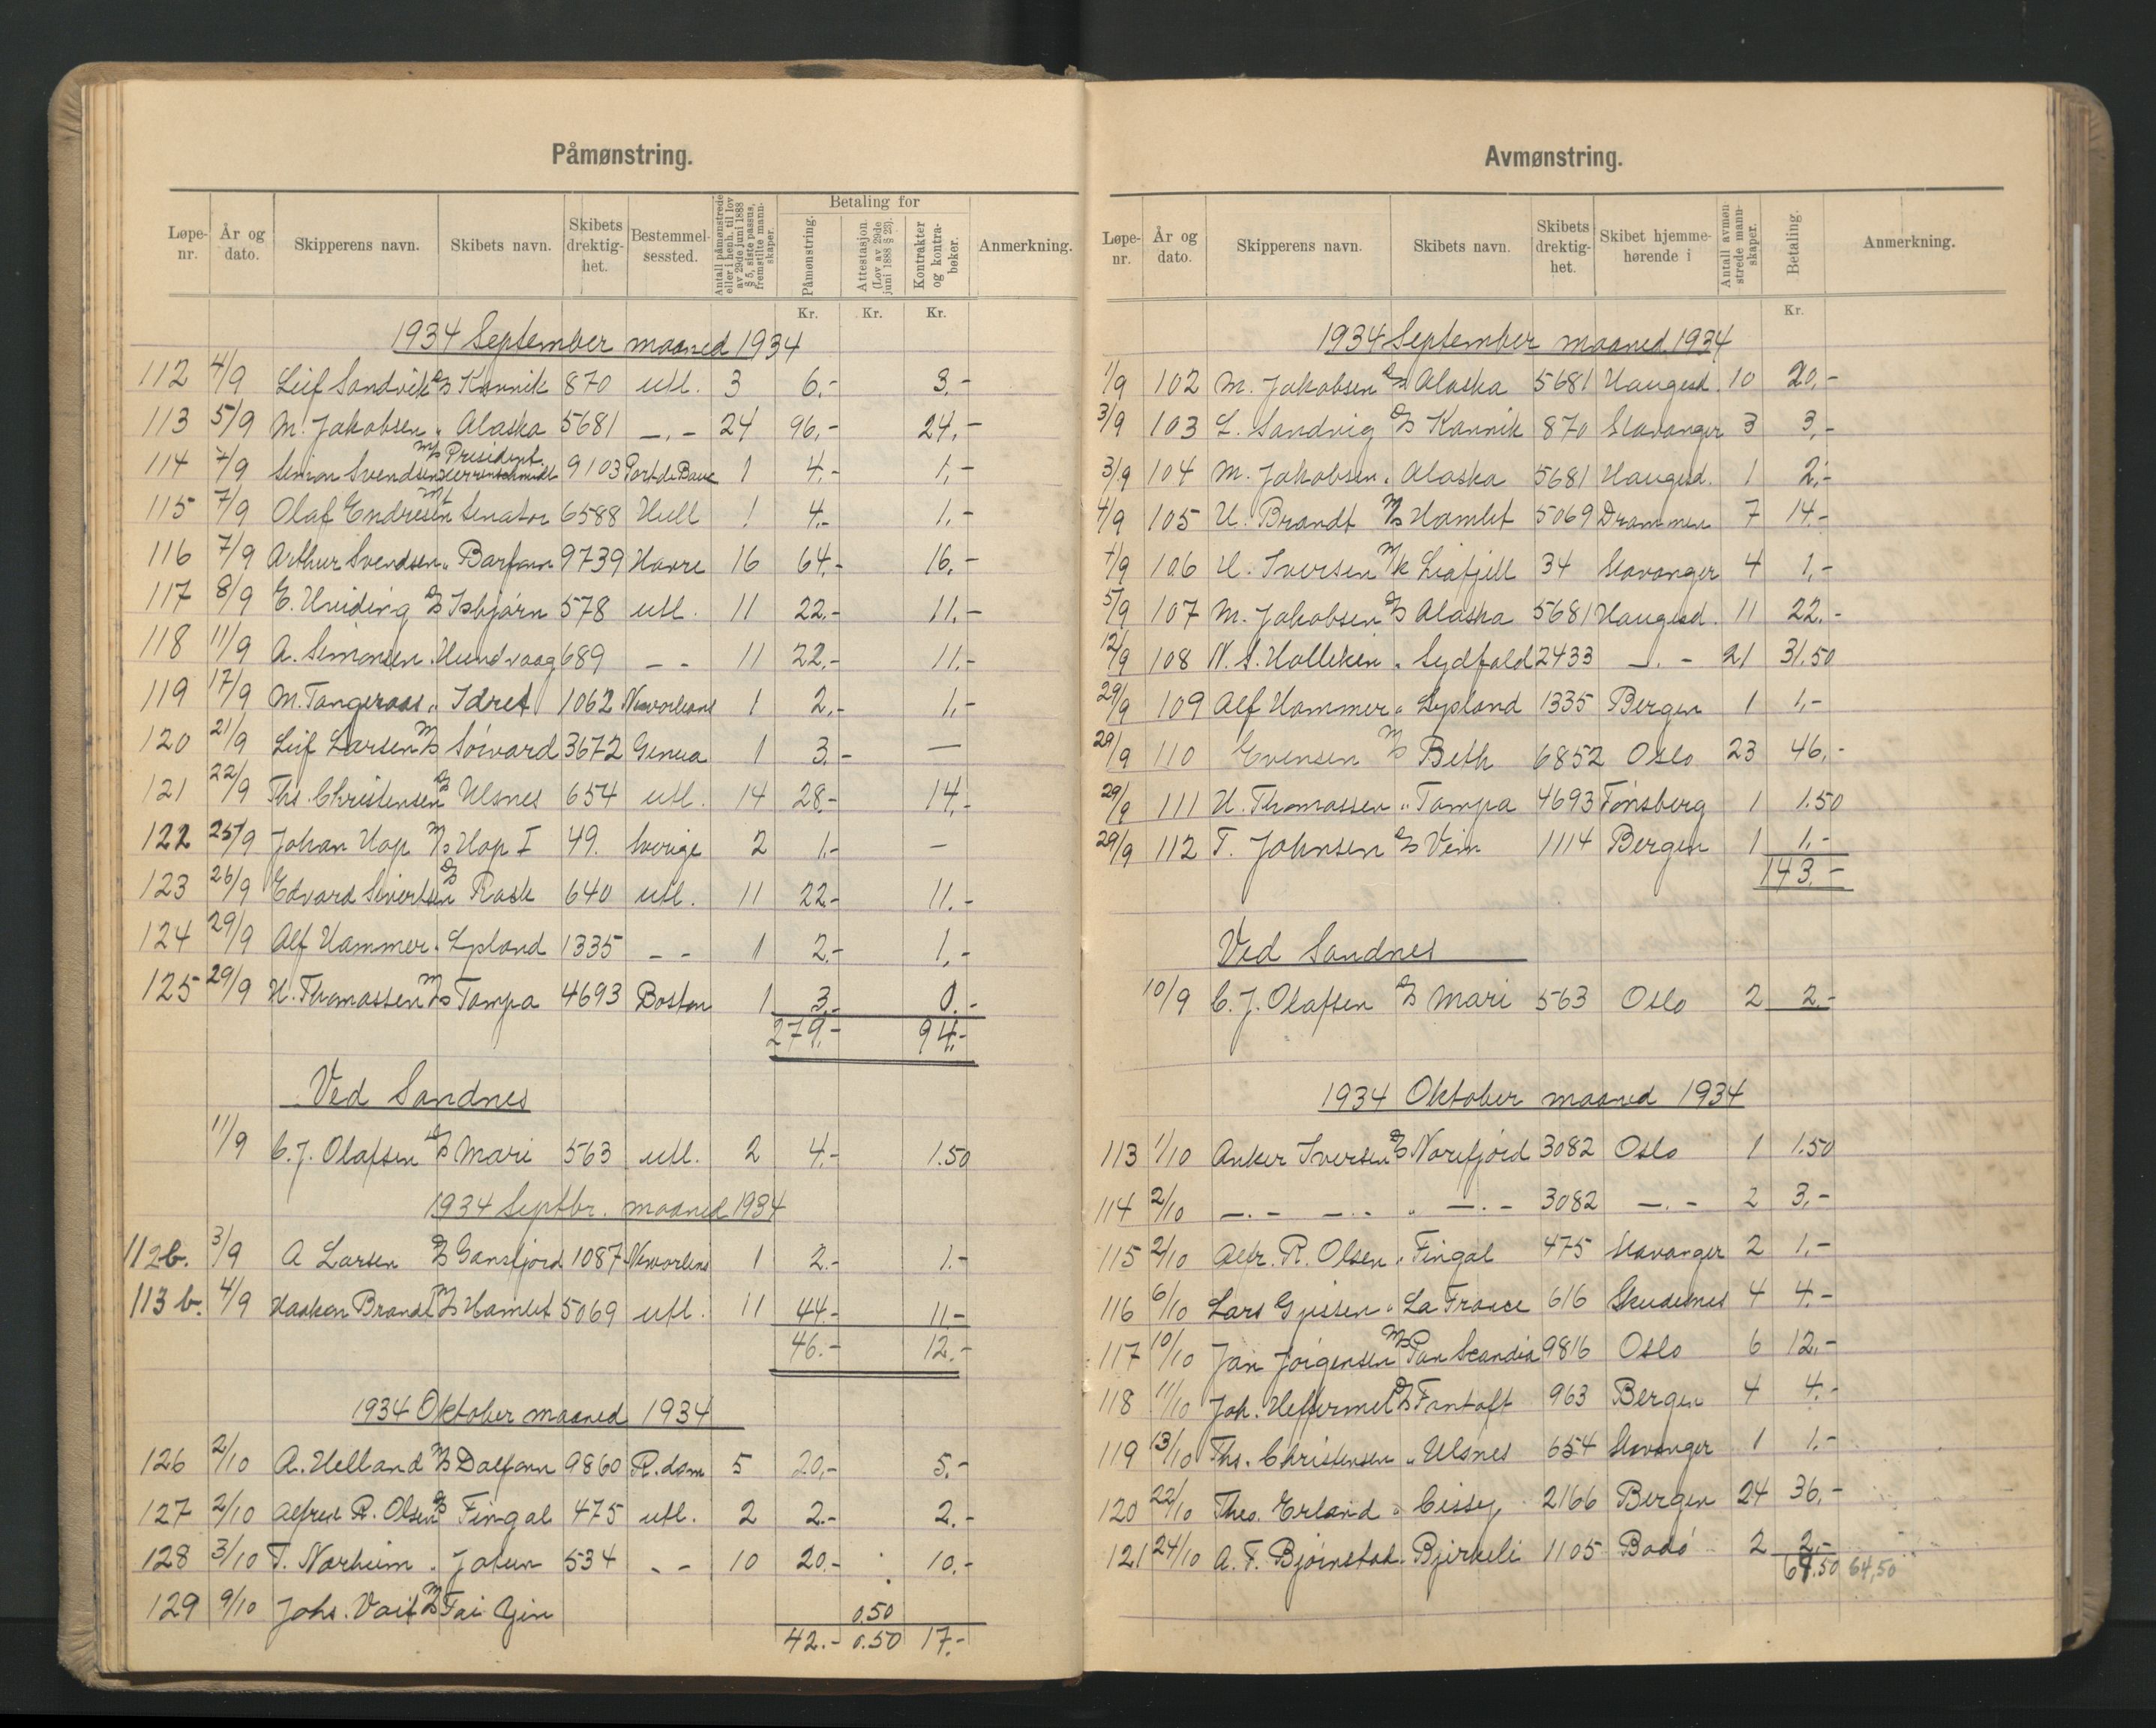 Påmønstring.
Løpe-nr. År og dato. Skipperens navn. Skibets navn. Skibets drektighet. Bestemmelsessted. Antall påmønstrede eller i henh. til lov av 29de juni 1888 § 5, siste passus, fremstilte mannskaper. Betaling for Påmønstring. Attestasjon (Lov av 29de juni 1888 § 23). Kontrakter og kontrabøker. Anmerkning.
Kr. Kr. Kr.
1934 September maaned 1934
112 4/9 Leif Sandvik D/S Kannik 870 utl. 3 6.- 3.-
113 5/9 M. Jakobsen " Alaska 5681 -.- 24 96.- 24.-
114 7/9 Simon Svendsen M/S President Herrenschmidt 9103 Port de Bouc 1 4.- 1.-
115 7/9 Olaf Endresen M/T Senator 6588 Hull 1 4.- 1.-
116 7/9 Arthur Svendsen " Barfonn 9739 Havre 16 64.- 16.-
117 8/9 E. Hviding D/S Isbjørn 578 utl. 11 22.- 11.-
118 11/9 A. Simonsen " Hundvaag 689 - - 11 22.- 11.-
119 17/9 M. Tangeraas " Idret 1062 Neworleans 1 2.- 1.-
120 21/9 Leif Larsen M/S Sörvard 3672 Genua 1 3.- —
121 22/9 Ths. Christensen D/S Ulsnes 654 utl. 14 28.- 14.-
122 25/9 Johan Hop M/S Hop I 49. Sverige 2 1.- —
123 26/9 Edvard Sivertsen D/S Rask 640 utl. 11 22.- 11.-
124 29/9 Alf Hammer " Lysland 1335 - - 1 2.- 1.-
125 29/9 H. Thomassen M/S Tampa 4693 Boston 1 3.- 0.-
279.- 94.-
Ved Sandnes
11/9 C. J. Olafsen D/S Mari 563 utl. 2 4.- 1.50
1934 Septbr. maaned 1934
112b. 3/9 A Larsen D/S Gansfjord 1087 Neworlens 1 2.- 1.-
113b. 4/9 Haakon Brandt M/S Hamlet 5069 utl. 11 44.- 11.-
46.- 12.-
1934 Oktober maaned 1934
126 2/10 A. Helland M/S Dalfonn 9860 R.dam 5 20.- 5.-
127 2/10 Alfred R. Olsen D/S Fingal 475 utl. 2 2.- 2.-
128 3/10 T. Norheim " Jotun 534 - - 10 20.- 10.-
129 9/10 Johs. Voit M/S Tai Yin 0.50
42.- 0.50 17.-
Avmønstring.
Løpe-nr. År og dato. Skipperens navn. Skibets navn. Skibets drektighet. Skibet hjemmehørende i Antall avmønstrede mannskaper. Betaling. Anmerkning.
Kr.
1934 September maaned 1934
1/9 102 M. Jakobsen D/S Alaska 5681 Haugesd. 10 20.-
3/9 103 L. Sandvig D/S Kannik 870 Stavanger 3 3.-
3/9 104 M. Jakobsen " Alaska 5681 Haugesd. 1 2.-
4/9 105 H. Brandt M/S Hamlet 5069 Drammen 7 14.-
4/9 106 H. Iversen M/k Liafjell 34 Stavanger 4 1.-
5/9 107 M. Jakobsen D/S Alaska 5681 Haugesd. 11 22.-
12/9 108 N. S. Halleken " Sydfold 2433 -.- 21 31.50
29/9 109 Alf Hammer " Lysland 1335 Bergen 1 1.-
29/9 110 Evensen M/S Beth 6852 Oslo 23 46.-
29/9 111 H. Thomassen " Tampa 4693 Tönsberg 1 1.50
29/9 112 T. Johnsen D/S Vim 1114 Bergen 1 1.-
143.-
Ved Sandnes
10/9 C. J. Olafsen D/S Mari 563 Oslo 2 2.-
1934 Oktober maaned 1934
113 1/10 Anker Iversen D/S Norefjord 3082 Oslo 1 1.50
114 2/10 -.- -.- " -.- 3082 -.- 2 3.-
115 2/10 Alfr. R. Olsen " Fingal 475 Stavanger 2 1.-
116 6/10 Lars Gjessen " La France 616 Skudesnes 4 4.-
117 10/10 Jan Jörgensen M/S Pan Scandia 9816 Oslo 6 12.-
118 11/10 Joh. Heffermel D/S Fantoft 963 Bergen 4 4.-
119 13/10 Ths. Christensen " Ulsnes 654 Stavanger 1 1.-
120 22/10 Theo. Erland " Cissy 2166 Bergen 24 36.-
121 24/10 A. F. Bjørnstad " Bjerkeli 1105 Bodö 2 2.-
64.50 64,50